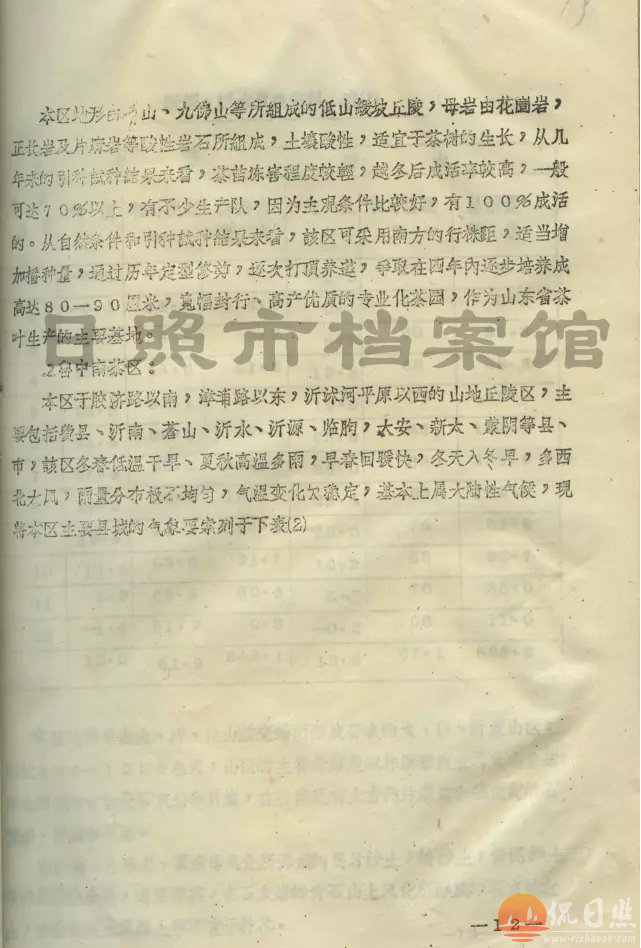 本区地形由山、九佛山等所組成的低山缓坡丘陵，母岩由花崗岩，
正长岩及片麻岩等酸性岩石所組成，土壤酸性，适宜于茶树的生长，从几
年来的引种試种結果来看，茶苗冻害程度較輕，越冬后成活率較高，一般
可达７０％以上，有不少生产队，因为主观条件比較好，有１００％成活
的。从自然条件和引种試种結果来看，該区可采用南方的行株距，适当增
加播种量，通过历年定型修剪，逐次打頂养蓬，争取在四年內逐步培养成
高达８０—９０厘米，寬幅封行、高产优质的专业化茶园，作为山东省茶
叶生产的主要基地。
2.魯中南茶区：
本区于胶济路以南，津浦路以东，沂沭河平原以西的山地丘陵区，主
要包括費县、沂南、蒼山、沂水、沂源、临朐，太安、新太、蒙阴等县、
市，該区冬春低温干旱、夏秋高温多雨，早春回暖快，冬天入冬早，多西
北大风，雨量分布极不均匀，气温变化欠稳定，基本上属大陆性气候，现
将本区主要县城的气象要素列于下表(2)
日照市档案馆
—12—
侃日照
www.rizhaokk.com